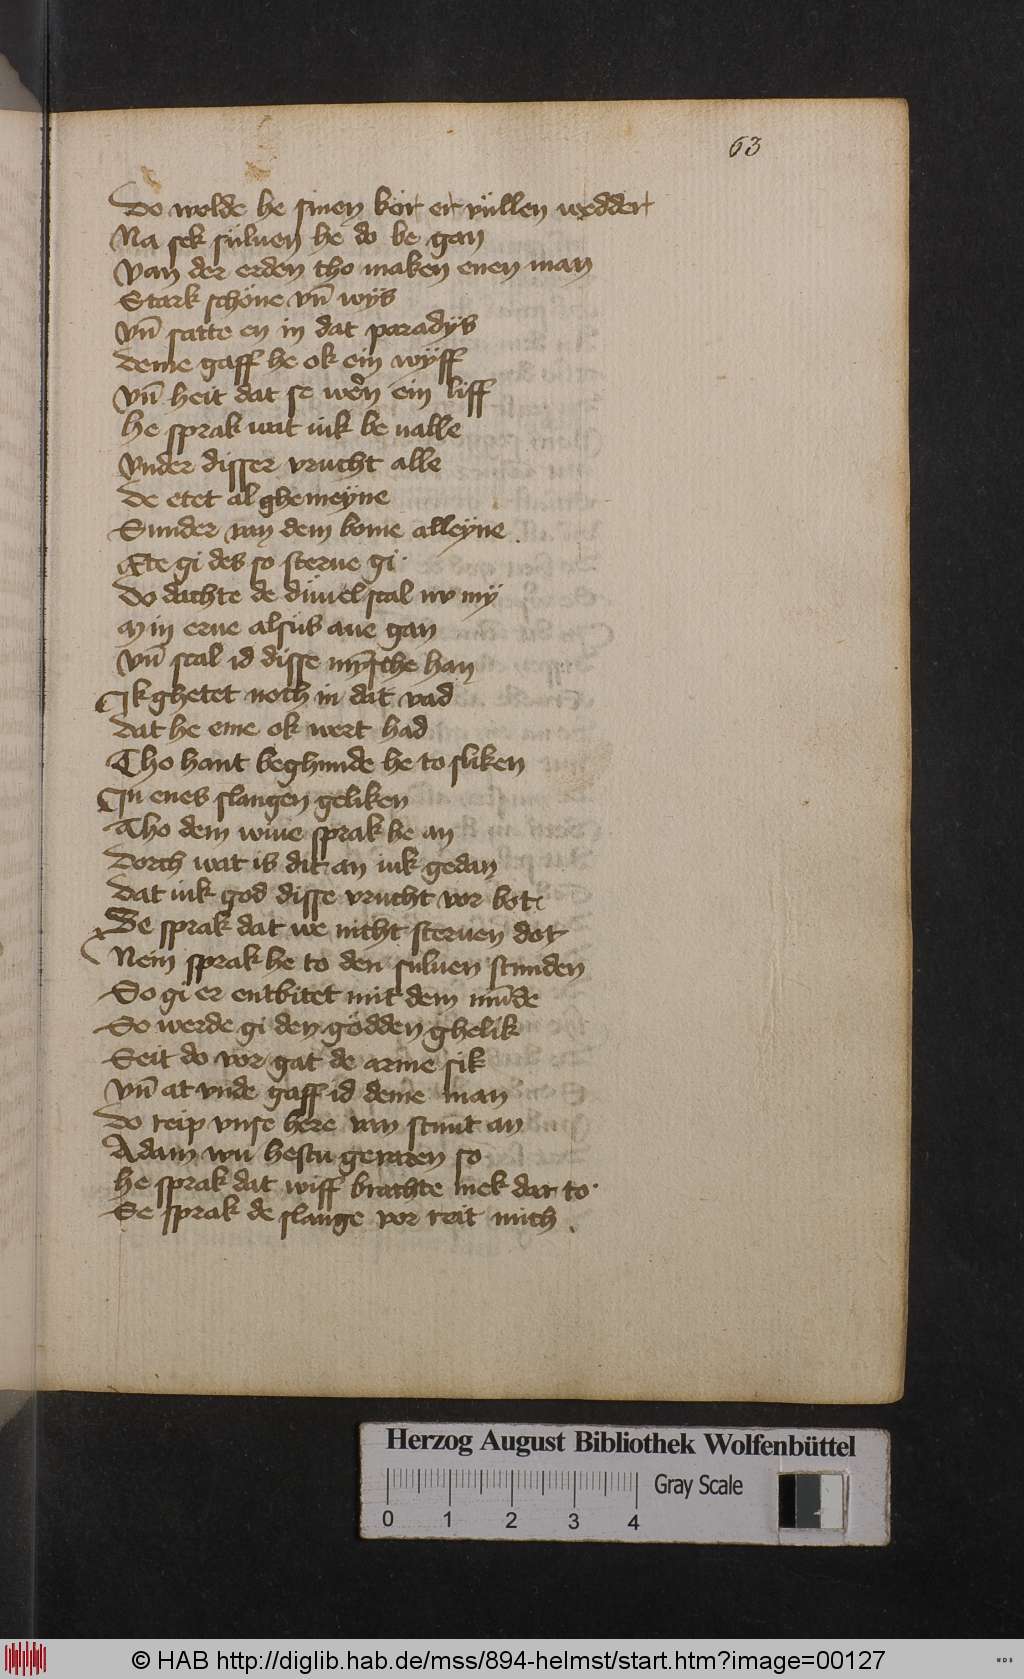 63
Do wolde he sinen kor er vüllen wedder
Na sek süluen he do be gan
Van der erden tho maken enen man
Stark schöne vn̄ wÿs
Vn̄ satte en in dat paradÿs
Deme gaff he ok ein wÿff
Vn̄ heit dat se wern ein liff
He sprak wat iuk be ualle
Vnder disser vrucht alle
De etet al ghemeÿne
Sunder van dem bome alleÿne
Ete gi des so sterue gi
Do dachte de düuel scal nv mÿ
Min erue alsüs aue gan
Vn̄ scal id disse han
Ik ghetet noch in dat vad
Dat he eme ok wert had
Tho hant beghunde he to sliken
In enes slangen geliken
Tho dem wiue sprak he an
Dorch wat is dit an iuk gedan
Dat iuk god disse vrucht vor bot
Se sprak dat we nicht steruen dot
Nein sprak he to den suluen stunden
So gi er entbitet mit dem mu̅de
So werde gi den gödden ghelik
Seit do vor gat de arme sik
Vn̄ at vnde gaff id deme man
Do reip vnse here van stunt an
Adam wu hestu geuaren so
He sprak dat wiff brachte mek dar to
Se sprak de slange vor reit mich
Herzog August Bibliothek Wolfenbüttel
Gray Scale
0 1 2 3 4
© HAB http://diglib.hab.de/mss/894-helmst/start.htm?image=00127